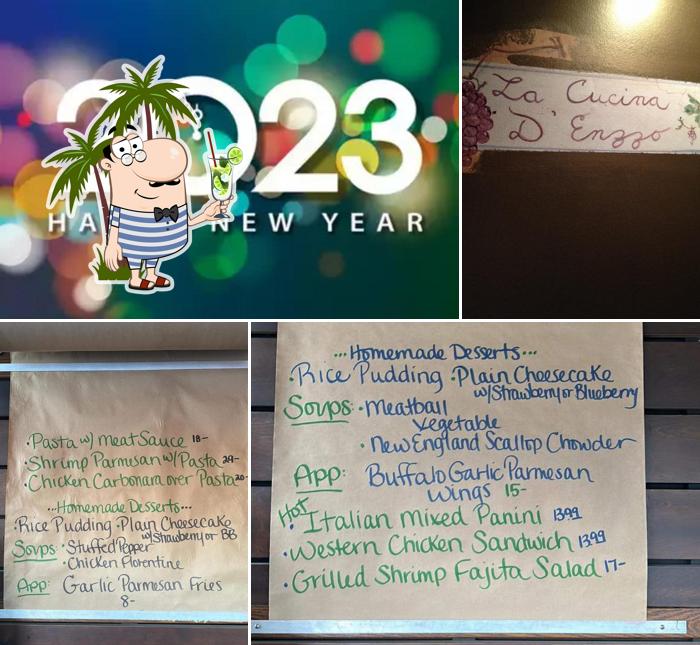 2023
HA NEW YEAR
La Cucina
D' Enzzo
•Pasta w/ meat Sauce 18-
•Shrimp Parmesan w/Pasta 24-
•Chicken Carbonara over Pasta 20-
...Homemade Desserts...
•Rice Pudding •Plain Cheesecake
w/Strawberry or BB
Soups: •Stuffed Pepper
•Chicken Florentine
App: Garlic Parmesan Fries
8-
...Homemade Desserts...
•Rice Pudding •Plain Cheesecake
w/Strawberry or Blueberry
Soups: •Meatball
Vegetable
•New England Scallop Chowder
App: Buffalo Garlic Parmesan
Wings 15-
Hot Italian Mixed Panini 13.99
•Western Chicken Sandwich 13.99
•Grilled Shrimp Fajita Salad 17-